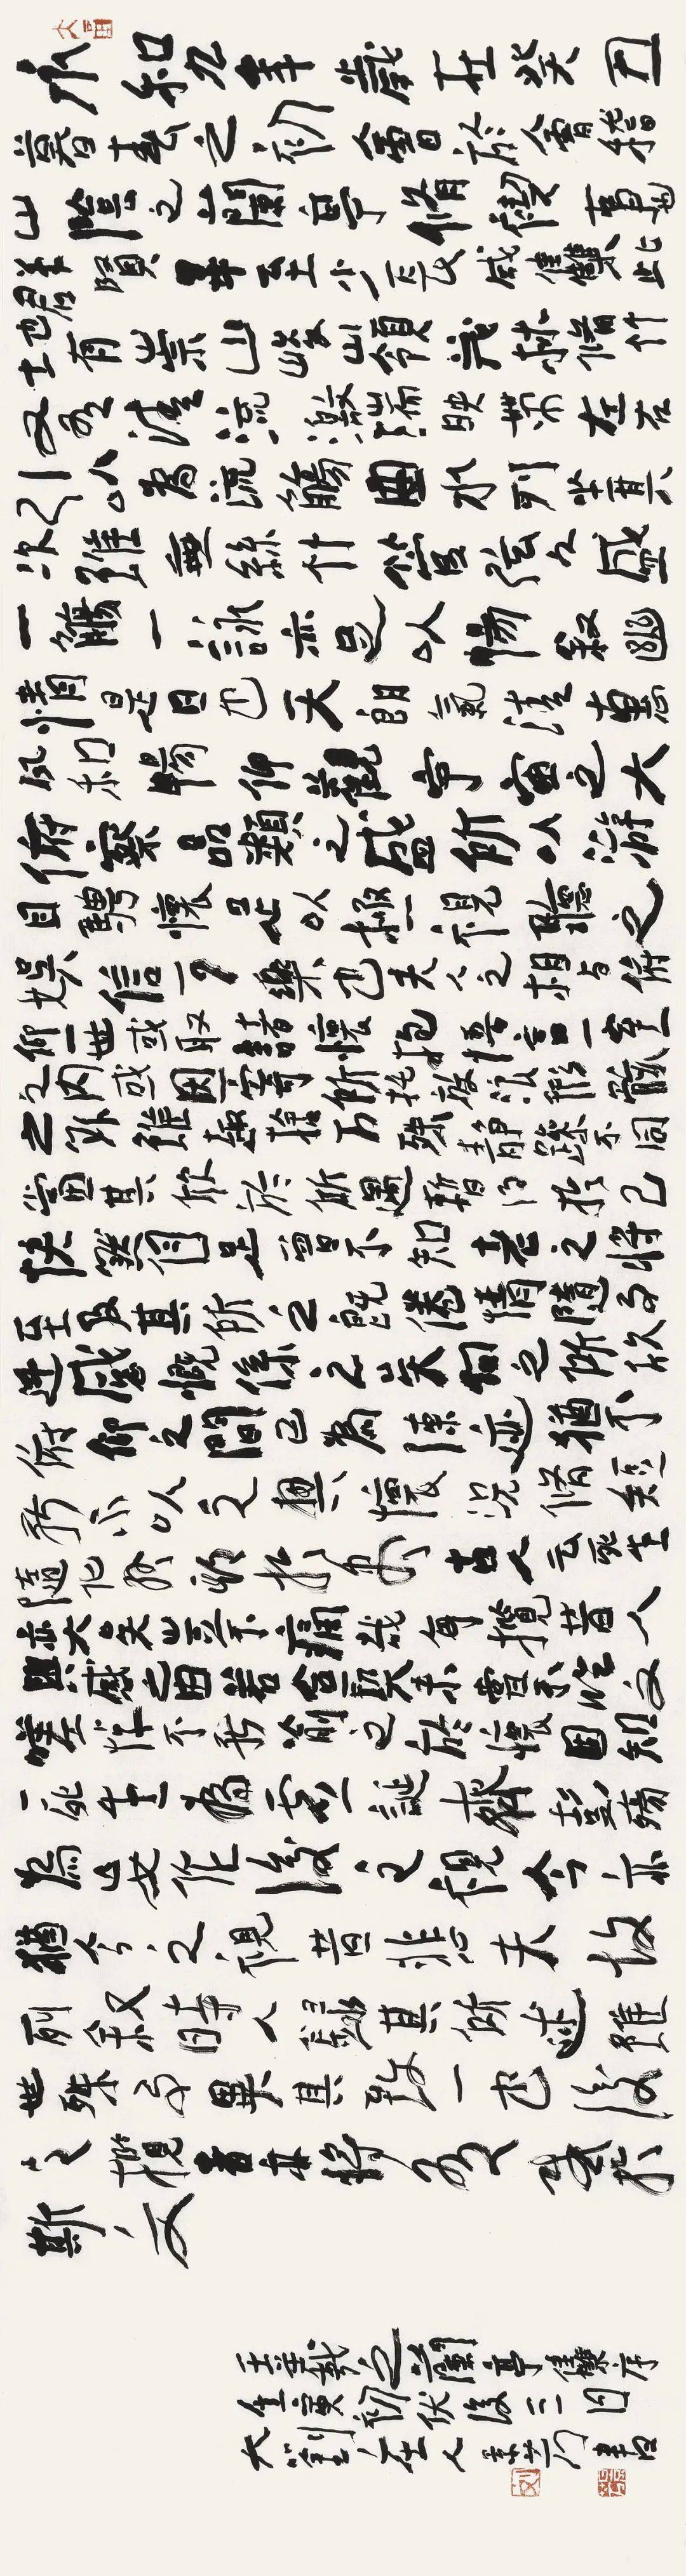 永和九年歲在癸丑
暮春之初會於會稽
山陰之蘭亭脩禊事也
羣賢畢至少長咸集此
地也有崇山峻領茂林脩竹
又有清流激湍映帶左右
引以為流觴曲水列坐其
次雖無絲竹管弦之盛
一觴一詠亦足以暢敘幽
情是日也天朗氣清惠
風和暢仰觀宇宙之大
俯察品類之盛所以遊
目騁懷足以極視聽之
娛信可樂也夫人之相與俯
仰一世或取諸懷抱悟言一室
之內或因寄所託放浪形骸
之外雖趣捨萬殊靜躁不同
當其欣於所遇暫得於己
快然自足曾不知老之將
至及其所之既倦情隨事
遷感慨係之矣向之所欣
俯仰之間已為陳迹猶不
能不以之興懷況脩短
隨化終期於盡古人云死生
亦大矣豈不痛哉每攬昔人
興感之由若合一契未嘗不臨文
嗟悼不能喻之於懷固知
一死生為虛誕齊彭殤
為妄作後之視今亦
猶今之視昔悲夫故
列敘時人錄其所述雖
世殊事異其致一也後
之攬者亦將有感於
斯文
王羲之蘭亭集序
壬寅初伏後三日
大劉莊人書